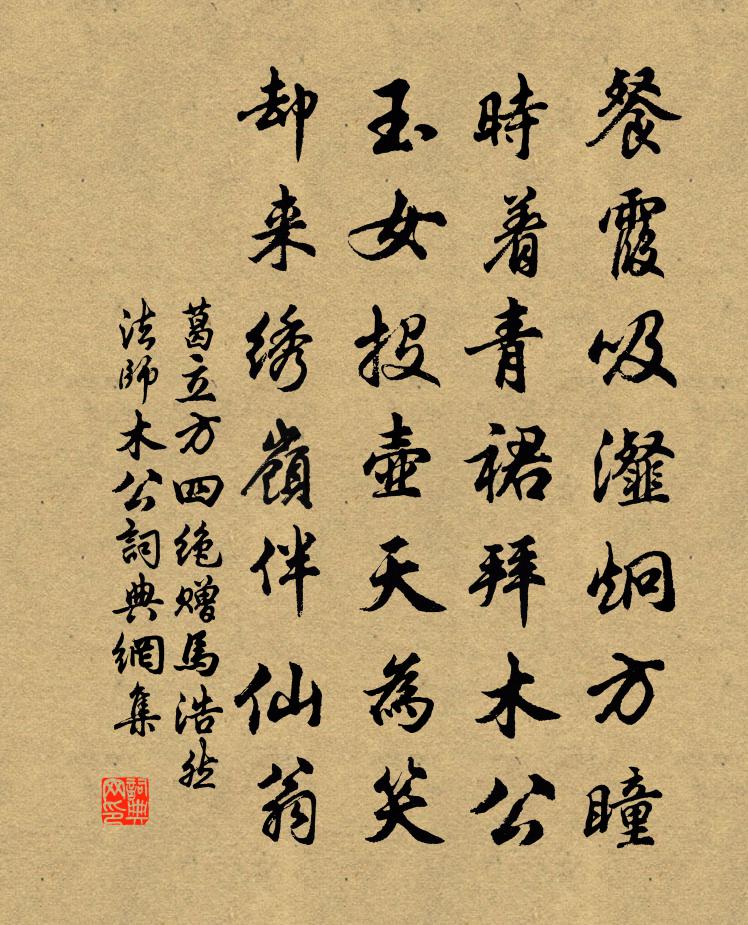 餐霞吸瀣炯方瞳
時着青裙拜木公
玉女投壺天為笑
却来绣嶺伴仙翁
葛立方四绝赠馬浩然
法師木公詞典網集
詞典网印